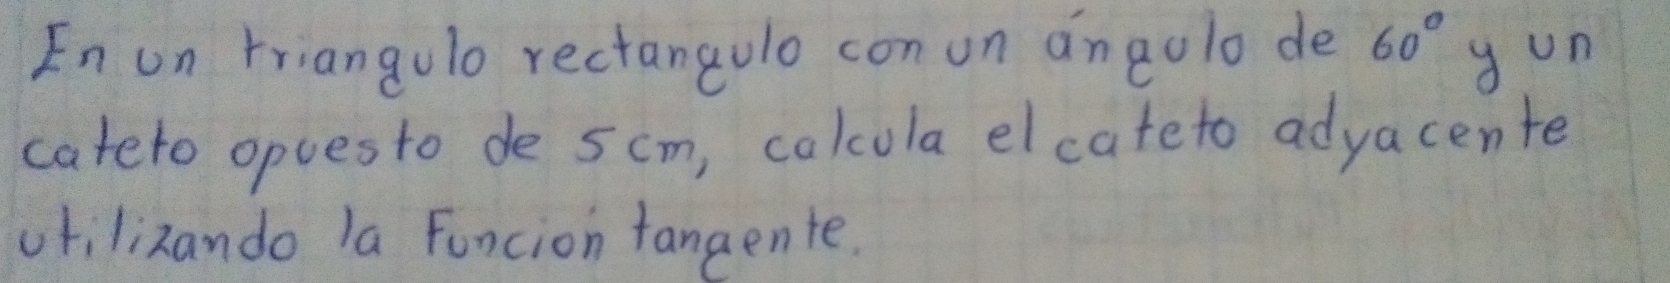 En un triangulo rectangulo con un ángulo de 60° y un
cateto opuesto de 5 cm, calcula el cateto adyacente
utilizando la Función tangente.